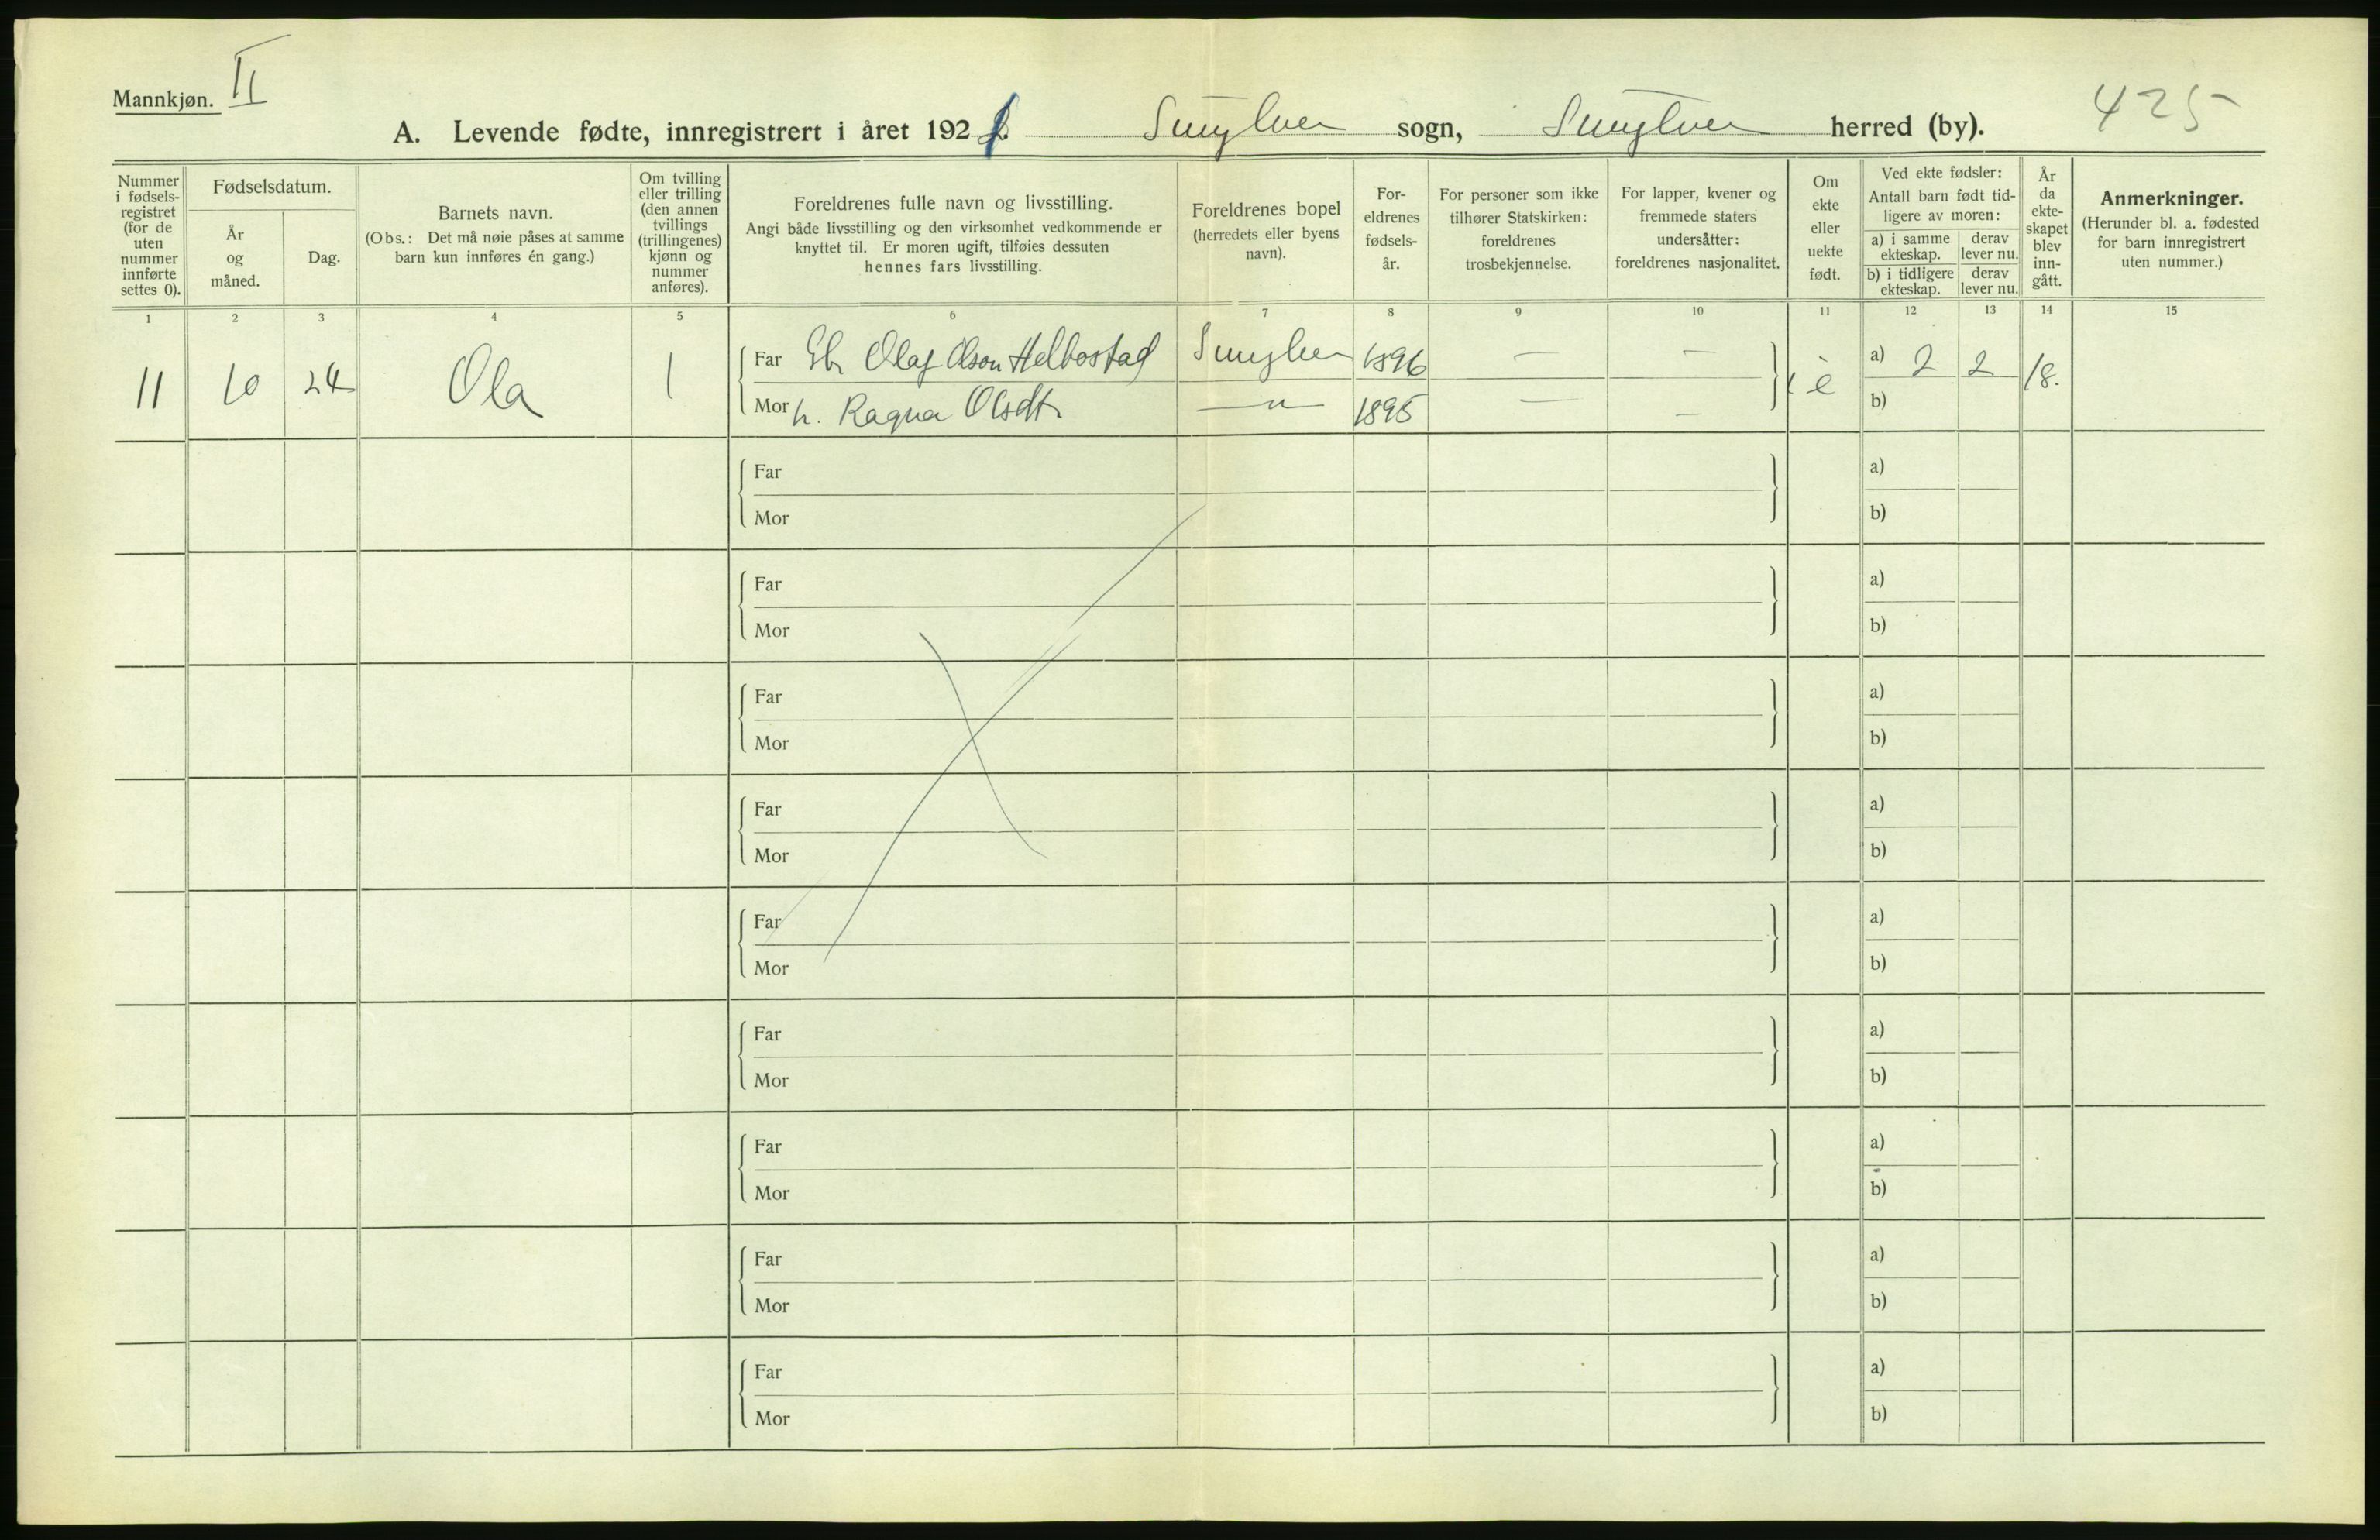 Mannkjøn. II
A. Levende fødte, innregistrert i året 192 sogn, herred (by). 425
Nummer i fødsels-registret (for de uten nummer innførte settes 0).
Fødselsdatum.
År og måned.
Dag.
Barnets navn.
(Obs.: Det må nøie påses at samme barn kun innføres én gang.)
Om tvilling eller trilling (den annen tvillings (trillingenes) kjønn og nummer anføres).
Foreldrenes fulle navn og livsstilling.
Angi både livsstilling og den virksomhet vedkommende er knyttet til. Er moren ugift, tilføies dessuten hennes fars livsstilling.
Foreldrenes bopel (herredets eller byens navn).
For-eldrenes fødsels-år.
For personer som ikke tilhører Statskirken: foreldrenes trosbekjennelse.
For lapper, kvener og fremmede staters undersåtter: foreldrenes nasjonalitet.
Om ekte eller uekte født.
Ved ekte fødsler:
Antall barn født tid-ligere av moren:
a) i samme ekteskap.
derav lever nu.
b) i tidligere ekteskap.
derav lever nu.
År da ekte-skapet blev inn-gått.
Anmerkninger.
(Herunder bl. a. fødested for barn innregistrert uten nummer.)
1 2 3 4 5 6 7 8 9 10 11 12 13 14 15
11 10 24 Ola 1 Far Olaf Olson Helbostad 1896 — — è a) 2 2 18.
Mor h. Ragna Olsdtr —"— 1895 — — b)
Far a)
Mor b)
Far a)
Mor b)
Far a)
Mor b)
Far a)
Mor b)
Far a)
Mor b)
Far a)
Mor b)
Far a)
Mor b)
Far a)
Mor b)
Far a)
Mor b)